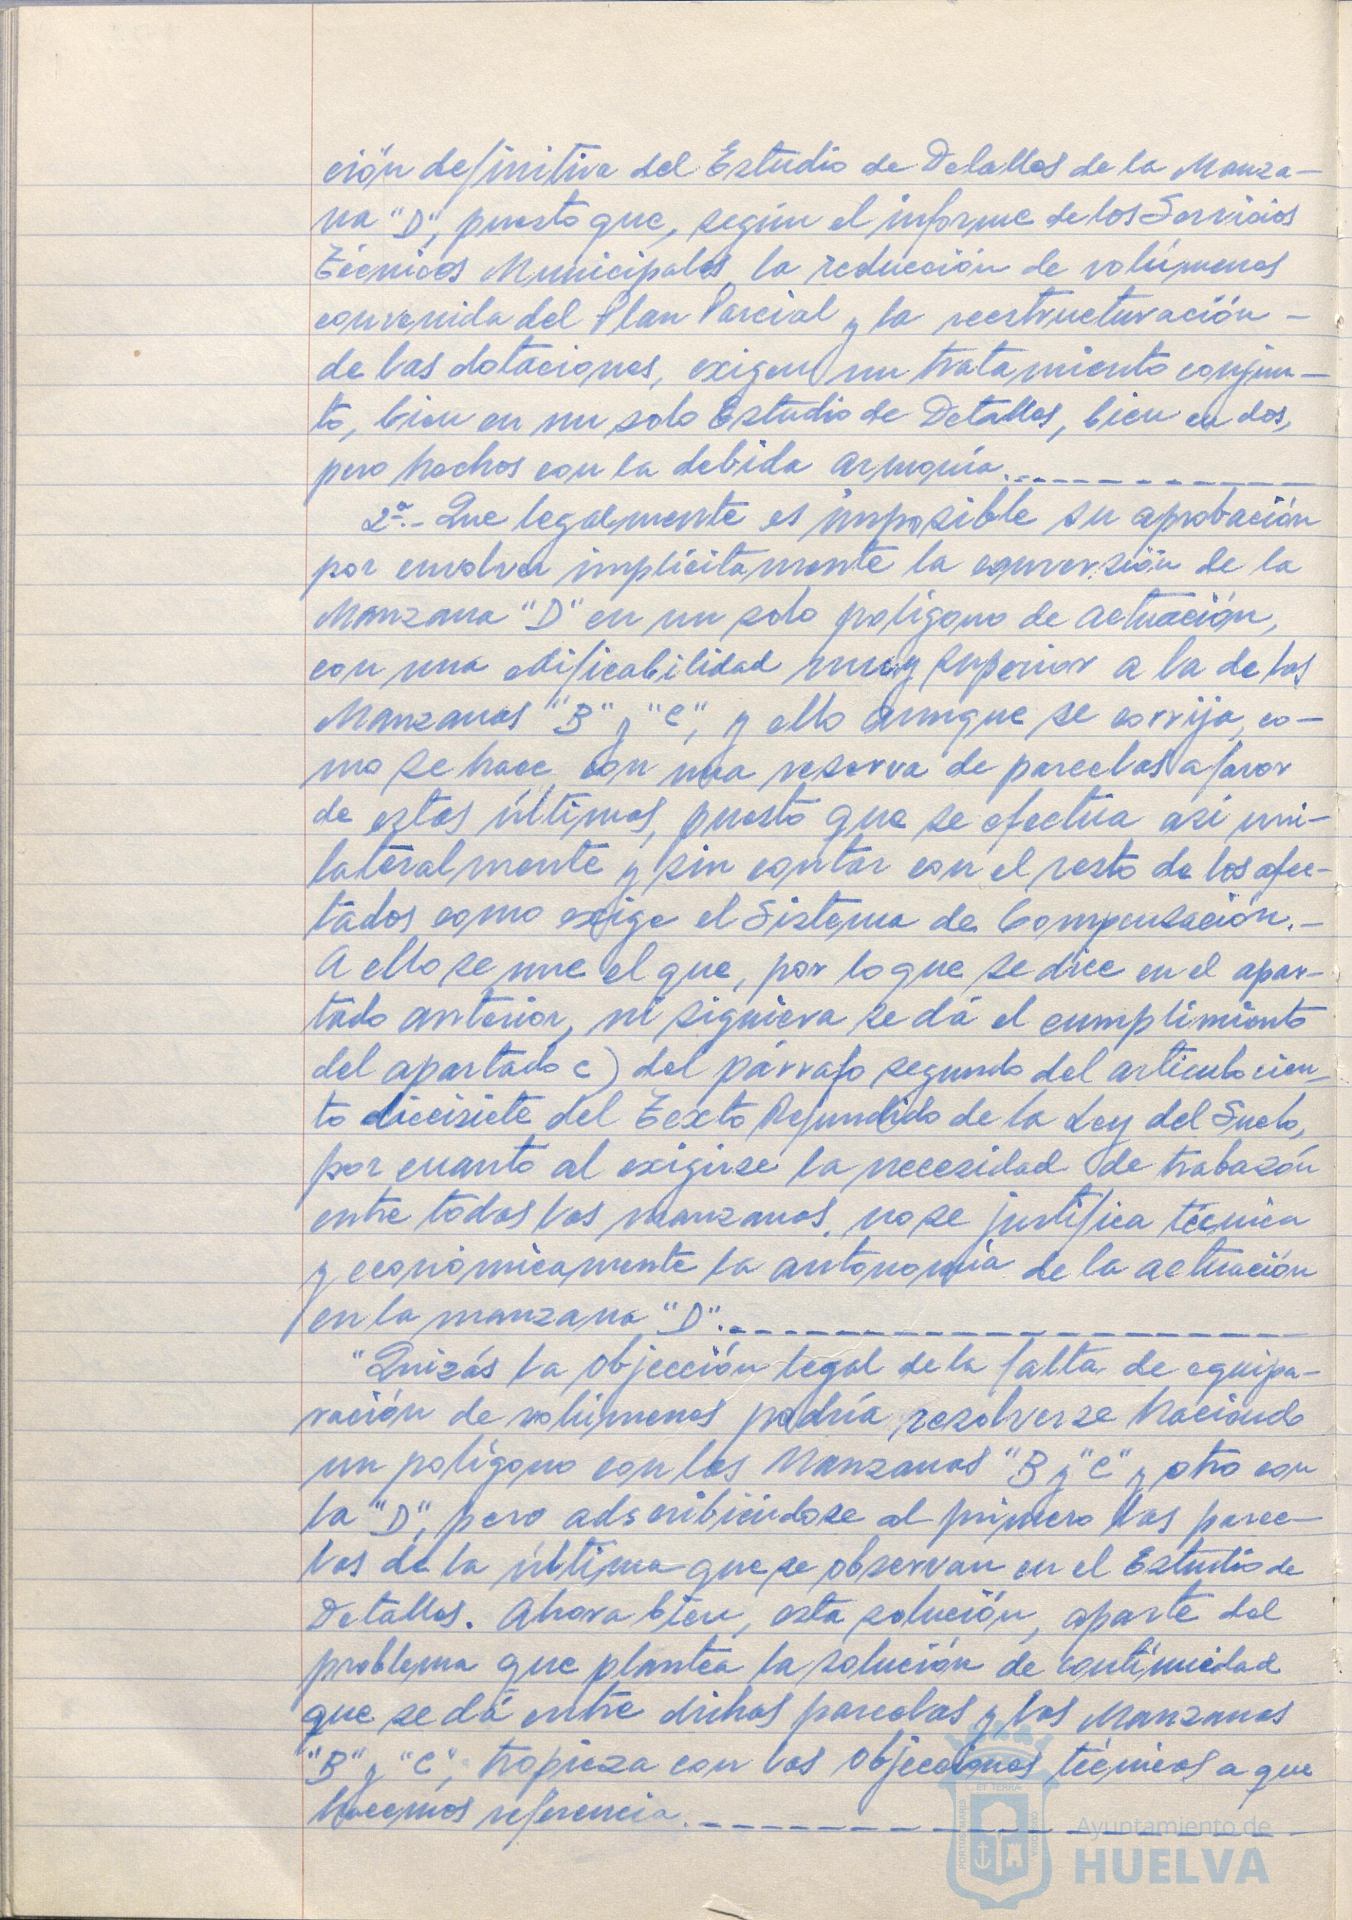 ción definitiva del Estudio de Detalles de la Manza-
na "D", puesto que, según el informe de los Servicios
Técnicos Municipales, la reducción de volúmenes
convenida del Plan Parcial y la reestructuración -
de las dotaciones, exigen un tratamiento conjun-
to, bien en un solo Estudio de Detalles, bien en dos,
pero hechos con la debida armonía.
2º.- Que legalmente es imposible su aprobación
por envolver implícitamente la conversión de la
Manzana "D" en un solo polígono de actuación,
con una edificabilidad muy superior a la de las
Manzanas "B" y "C", y ello aunque se corrija, co-
mo se hace con una reserva de parcelas a favor
de estas últimas, puesto que se efectúa así uni-
lateralmente y sin contar con el resto de los afec-
tados como exige el Sistema de Compensación.-
A ello se une el que, por lo que se dice en el apar-
tado anterior, ni siquiera se dá el cumplimiento
del apartado c) del párrafo segundo del artículo cien-
to diecisiete del Texto Refundido de la Ley del Suelo,
por cuanto al exigirse la necesidad de trabazón
entre todas las manzanas, no se justifica técnica
y económicamente la autonomía de la actuación
en la manzana "D".
"Quizás la objección legal de la falta de equipa-
ración de volúmenes podría resolverse haciendo
un polígono con las Manzanas "B y "C" y otro con
la "D", pero adscribiéndose al primero las parce-
las de la última que se observan en el Estudio de
Detalles. Ahora bien, esta solución, aparte del
problema que plantea la solución de continuidad
que se dá entre dichas parcelas y las Manzanas
"B" y "C", tropieza con las objecciones técnicas a que
hacemos referencia.
ET TERRAE
PORTUS MARIS
CUSTODIA
Ayuntamiento de
HUELVA